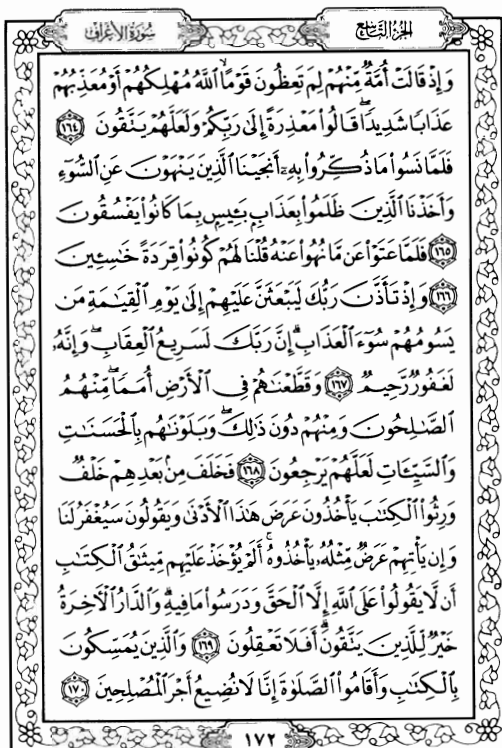 سُورَةُ الأَعْرَافِ الجُزْءُ التَّاسِعُ
وَإِذْ قَالَتْ أُمَّةٌ مِّنْهُمْ لِمَ تَعِظُونَ قَوْمًا ٱللَّهُ مُهْلِكُهُمْ أَوْ مُعَذِّبُهُمْ
عَذَابًا شَدِيدًا ۖ قَالُوا۟ مَعْذِرَةً إِلَىٰ رَبِّكُمْ وَلَعَلَّهُمْ يَتَّقُونَ ١٦٤
فَلَمَّا نَسُوا۟ مَا ذُكِّرُوا۟ بِهِۦٓ أَنجَيْنَا ٱلَّذِينَ يَنْهَوْنَ عَنِ ٱلسُّوٓءِ
وَأَخَذْنَا ٱلَّذِينَ ظَلَمُوا۟ بِعَذَابٍۭ بَـِٔيسٍۭ بِمَا كَانُوا۟ يَفْسُقُونَ
١٦٥ فَلَمَّا عَتَوْا۟ عَن مَّا نُهُوا۟ عَنْهُ قُلْنَا لَهُمْ كُونُوا۟ قِرَدَةً خَـٰسِـِٔينَ
١٦٦ وَإِذْ تَأَذَّنَ رَبُّكَ لَيَبْعَثَنَّ عَلَيْهِمْ إِلَىٰ يَوْمِ ٱلْقِيَـٰمَةِ مَن
يَسُومُهُمْ سُوٓءَ ٱلْعَذَابِ ۗ إِنَّ رَبَّكَ لَسَرِيعُ ٱلْعِقَابِ ۖ وَإِنَّهُۥ
لَغَفُورٌ رَّحِيمٌ ١٦٧ وَقَطَّعْنَـٰهُمْ فِى ٱلْأَرْضِ أُمَمًا ۖ مِّنْهُمُ
ٱلصَّـٰلِحُونَ وَمِنْهُمْ دُونَ ذَٰلِكَ ۖ وَبَلَوْنَـٰهُم بِٱلْحَسَنَـٰتِ
وَٱلسَّيِّـَٔاتِ لَعَلَّهُمْ يَرْجِعُونَ ١٦٨ فَخَلَفَ مِنۢ بَعْدِهِمْ خَلْفٌ
وَرِثُوا۟ ٱلْكِتَـٰبَ يَأْخُذُونَ عَرَضَ هَـٰذَا ٱلْأَدْنَىٰ وَيَقُولُونَ سَيُغْفَرُ لَنَا
وَإِن يَأْتِهِمْ عَرَضٌ مِّثْلُهُۥ يَأْخُذُوهُ ۚ أَلَمْ يُؤْخَذْ عَلَيْهِم مِّيثَـٰقُ ٱلْكِتَـٰبِ
أَن لَّا يَقُولُوا۟ عَلَى ٱللَّهِ إِلَّا ٱلْحَقَّ وَدَرَسُوا۟ مَا فِيهِ ۗ وَٱلدَّارُ ٱلْـَٔاخِرَةُ
خَيْرٌ لِّلَّذِينَ يَتَّقُونَ ۗ أَفَلَا تَعْقِلُونَ ١٦٩ وَٱلَّذِينَ يُمَسِّكُونَ
بِٱلْكِتَـٰبِ وَأَقَامُوا۟ ٱلصَّلَوٰةَ إِنَّا لَا نُضِيعُ أَجْرَ ٱلْمُصْلِحِينَ ١٧٠
١٧٢